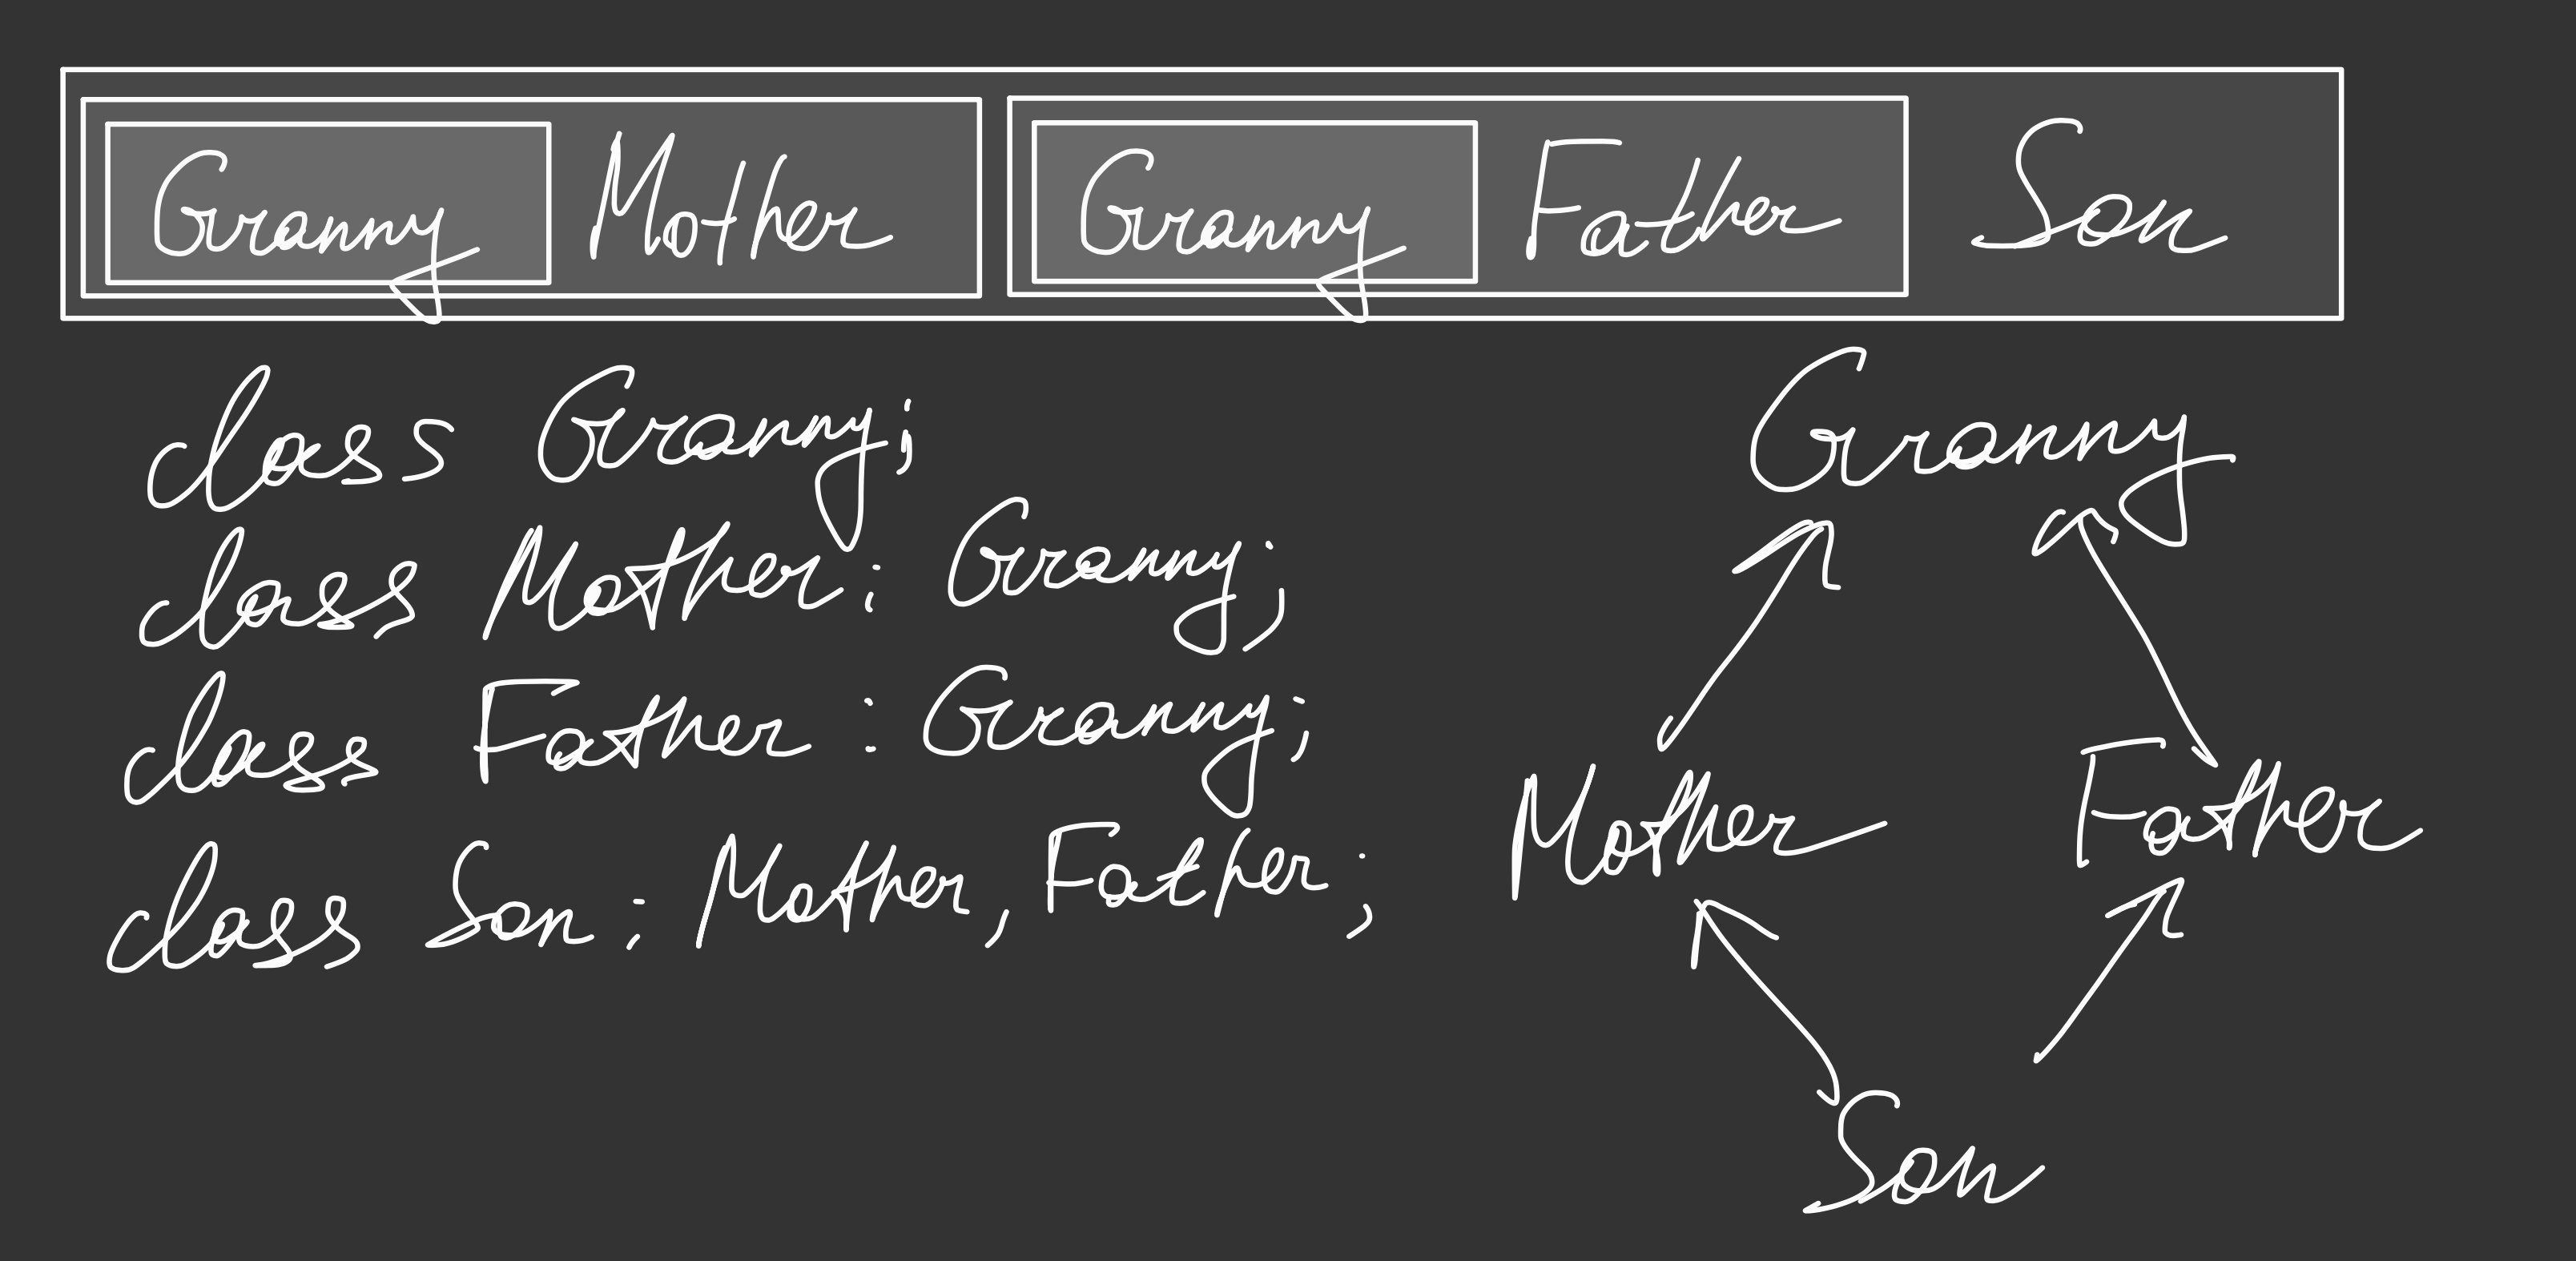 Granny Mother Granny Father Son
class Granny;
class Mother: Granny;
class Father : Granny;
class Son : Mother, Father;
Granny
Mother Father
Son